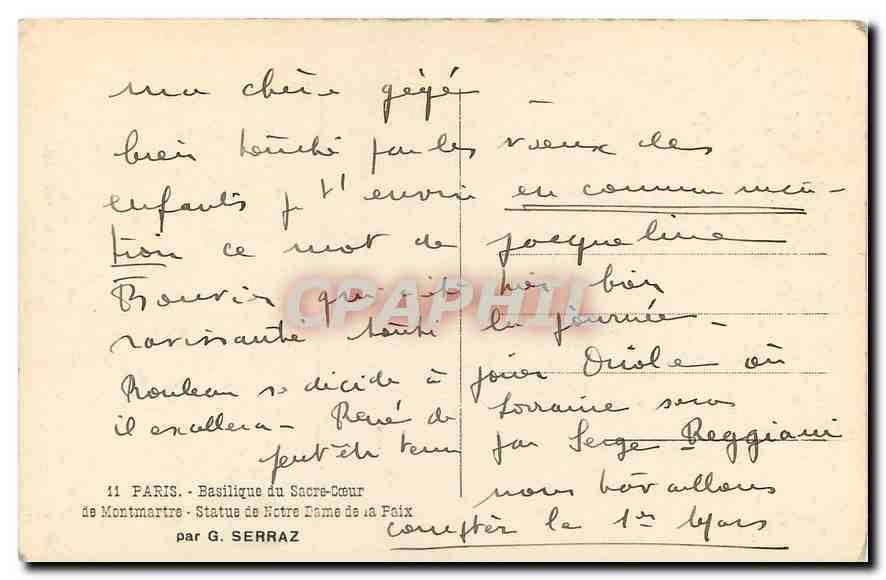 ma chère gégé
bien touché par les vœux des
enfants je t'envoie en communica-
tion ce mot de Jacqueline
Bouvier qui était hier bien
ravissante toute la journée –
Rouleau se décide à jouer Oriole où
il excellera – René de Lorraine sera
peut-être tenu par Serge Reggiani
nous travaillons
compter le 1er Mars
11 PARIS. - Basilique du Sacré-Cœur
de Montmartre - Statue de Notre Dame de la Paix
par G. SERRAZ
CPAPHIL